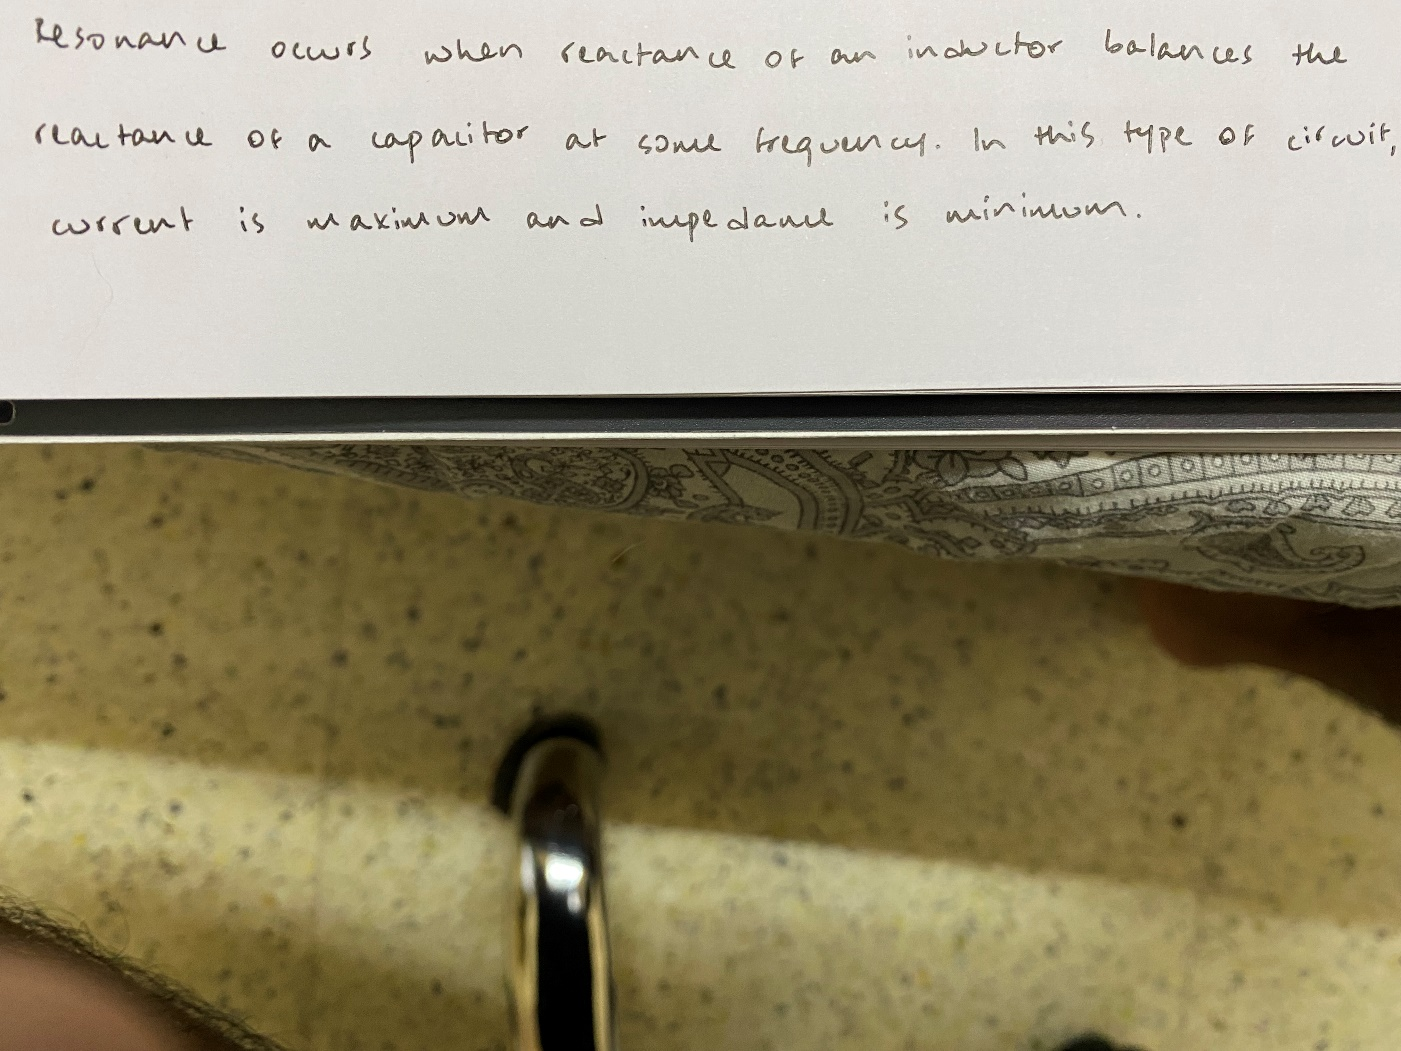 Resonance occurs when reactance of an inductor balances the
reactance of a capacitor at some frequency. In this type of circuit,
current is maximum and impedance is minimum.